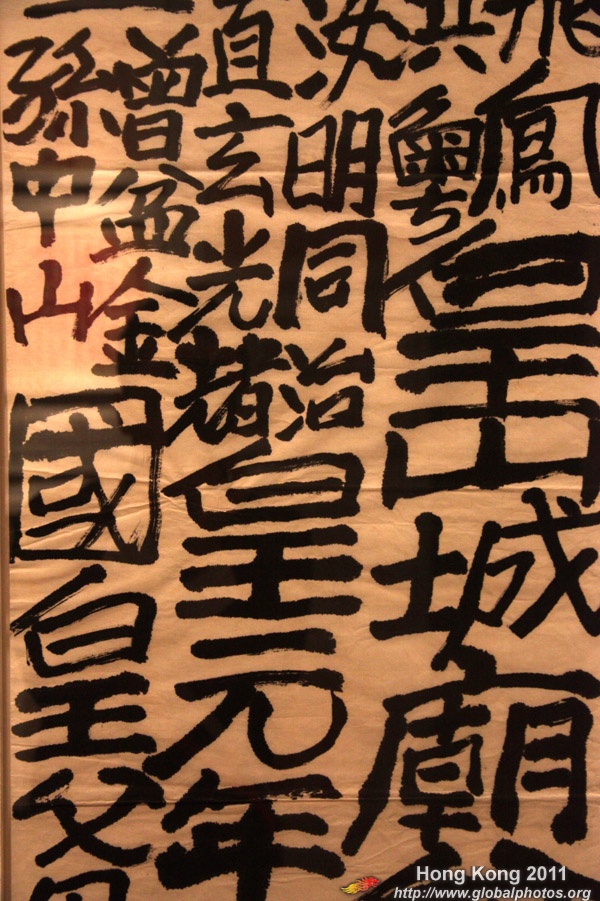 飛鳳
兵粵
皇山城廟
明同治
直玄光緒
皇元年
曾盆金
孫中山
國皇父母
Hong Kong 2011
http://www.globalphotos.org